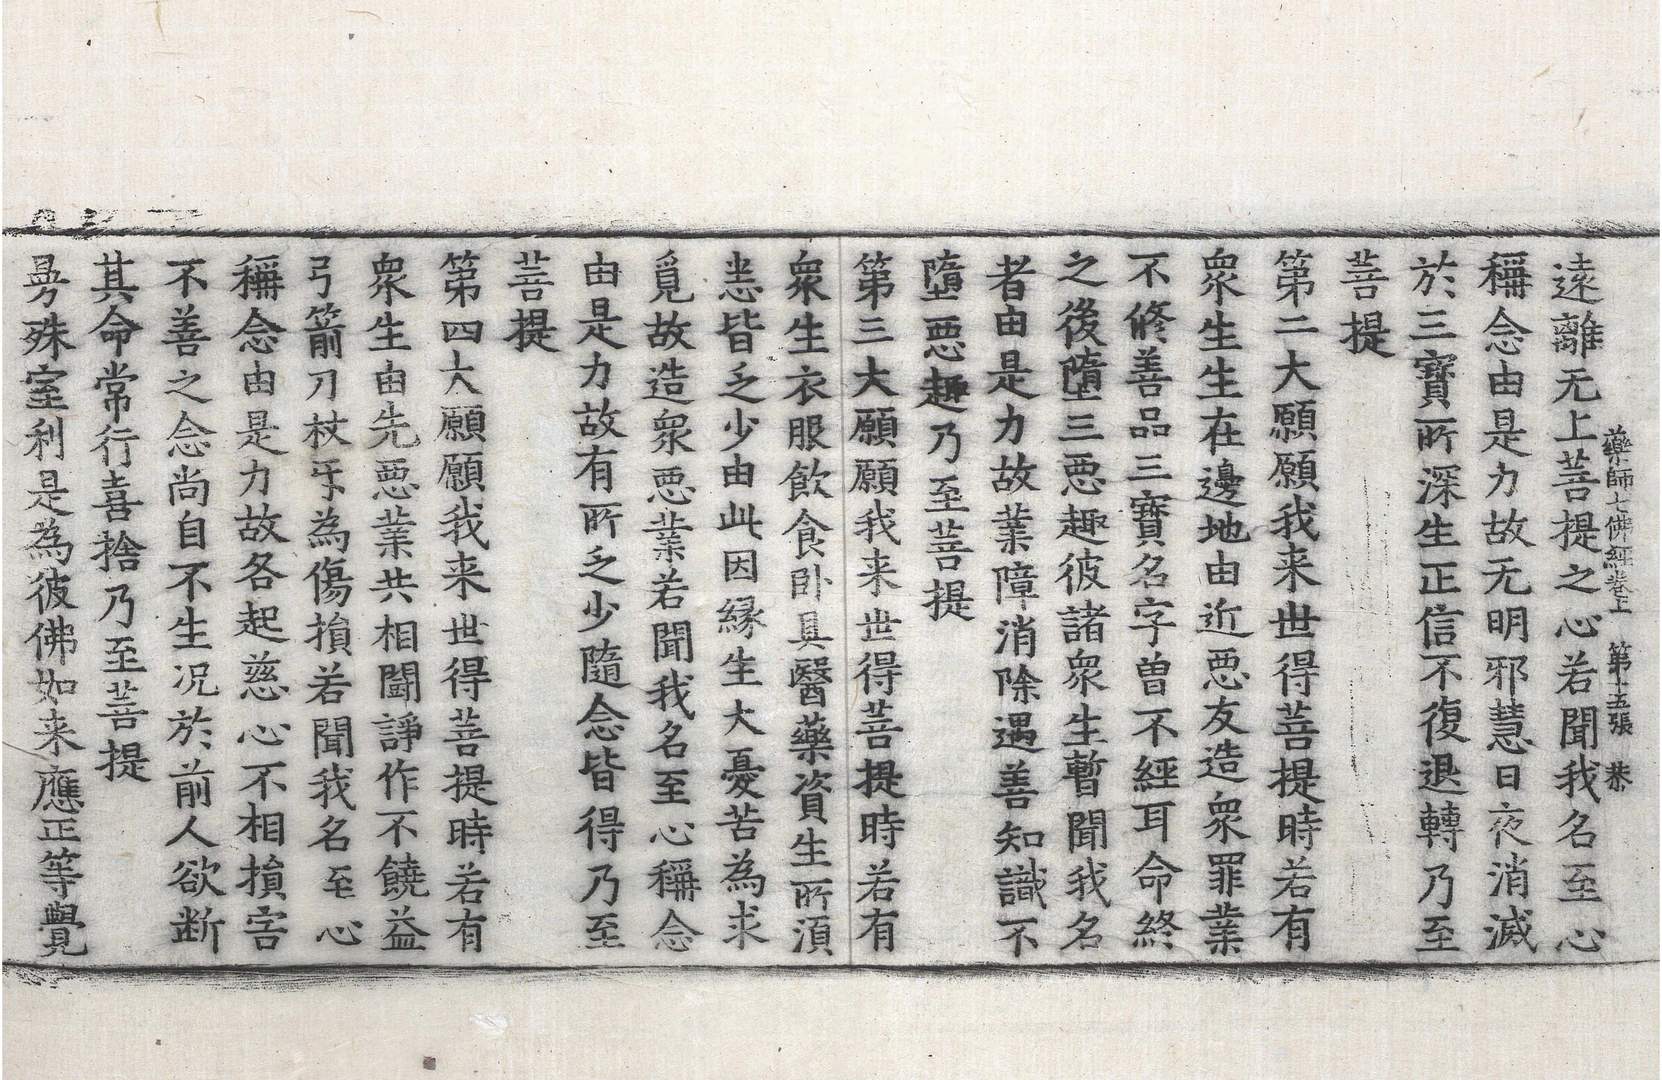 藥師七佛經卷上　第十五張　恭
遠離无上菩提之心若聞我名至心
稱念由是力故无明邪慧日夜消滅
於三寶所深生正信不復退轉乃至
菩提
第二大願願我来世得菩提時若有
衆生生在邊地由近惡友造衆罪業
不修善品三寶名字曾不經耳命終
之後墮三惡趣彼諸衆生暫聞我名
者由是力故業障消除遇善知識不
墮惡趣乃至菩提
第三大願願我来世得菩提時若有
衆生衣服飲食卧具醫藥資生所湏
悉皆乏少由此因縁生大憂苦為求
覓故造衆惡業若聞我名至心稱念
由是力故有所乏少隨念皆得乃至
菩提
第四大願願我来世得菩提時若有
衆生由先惡業共相鬪諍作不饒益
弓箭刀杖牙為傷損若聞我名至心
稱念由是力故各起慈心不相損害
不善之念尚自不生况於前人欲断
其命常行喜捨乃至菩提
曼殊室利是為彼佛如来應正等覺